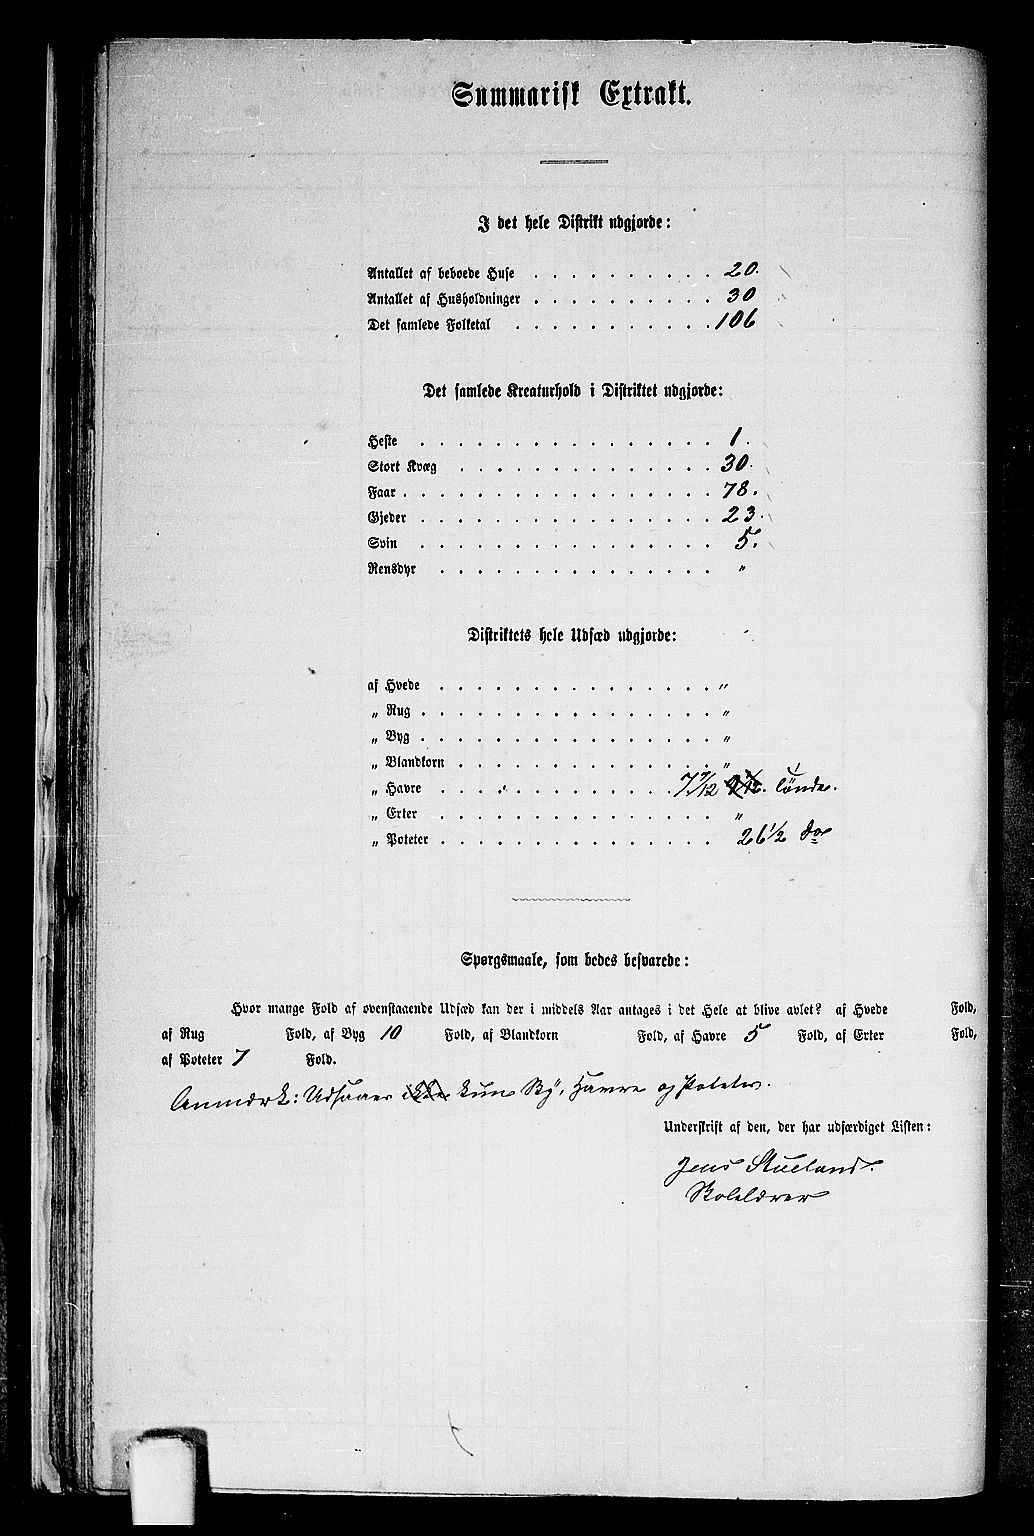 Summarisk Extrakt.
I det hele Distrikt udgjorde:
Antallet af beboede Huse . . . . . . . . . . 20.
Antallet af Husholdninger . . . . . . . . . . 30
Det samlede Folketal . . . . . . . . . . . 106
Det samlede Kreaturhold i Distriktet udgjorde:
Heste . . . . . . . . . . . . . . . . 1.
Stort Kvæg . . . . . . . . . . . . . . 30.
Faar . . . . . . . . . . . . . . . . . 78.
Gjeder . . . . . . . . . . . . . . . . 23.
Svin . . . . . . . . . . . . . . . . 5.
Rensdyr . . . . . . . . . . . . . . . "
Distriktets hele Udsæd udgjorde:
af Hvede . . . . . . . . . . . . . . . "
„ Rug . . . . . . . . . . . . . . . . "
„ Byg . . . . . . . . . . . . . . . . "
„ Blandkorn . . . . . . . . . . . . . . "
„ Havre . . . . . . . . . . . . . Tønde.
„ Erter . . . . . . . . . . . . . . . "
„ Poteter . . . . . . . . . . . . . . . 26½ do
Spørgsmaale, som bedes besvarede:
Hvor mange Fold af ovenstaaende Udsæd kan der i middels Aar antages i det Hele at blive avlet? af Hvede Fold,
af Rug Fold, af Byg 10 Fold, af Blandkorn Fold, af Havre 5 Fold, af Erter Fold,
af Poteter 7 Fold.
Anmærk: Udsaaes ikke kun Byg, Havre og Poteter.
Underskrift af den, der har udfærdiget Listen:
Jens Stueland.
Skolelærer